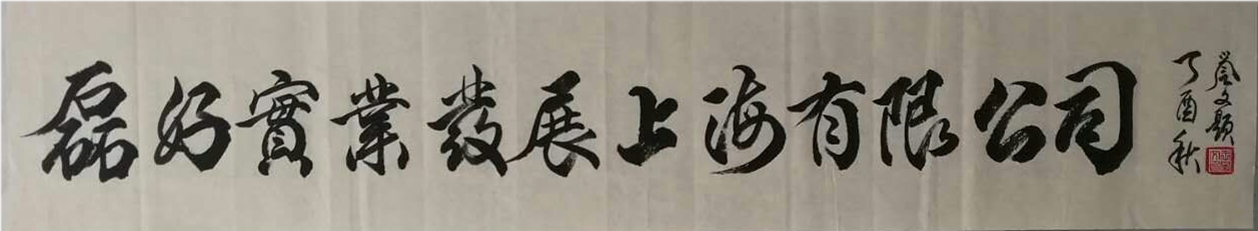 磊好實業發展上海有限公司
丁酉秋